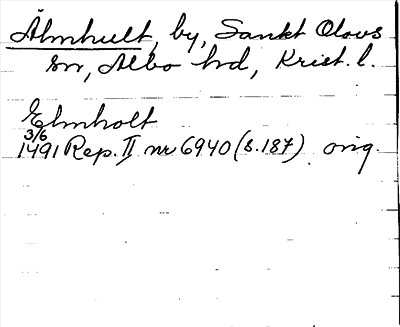 Älmhult, by, Sankt Olovs
sn, Albo hd, Krist. l.
Elmholt
3/6
1491 Rep. II nr 6940 (s. 187) orig.